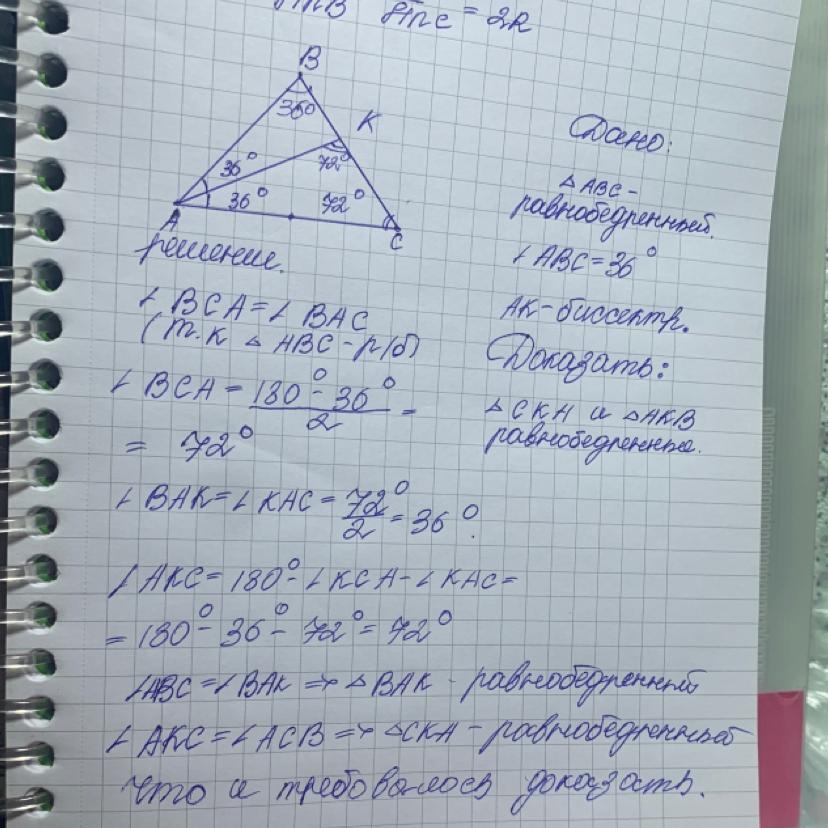 sinc = 2R
B
36°
K
36°
72°
36°
72°
A
C
Дано:
△ABC-
равнобедренный.
∠ABC=36°
AK-биссектр.
Доказать:
△CKA и △AKB
равнобедренные.
решение.
∠BCA=∠BAC
(т.к △ABC-р/б)
∠BCA = 180°-36° / 2 =
= 72°
∠BAK=∠KAC= 72° / 2 = 36°.
∠AKC=180°-∠KCA-∠KAC=
=180°-36°-72°=72°
∠ABC=∠BAK => △BAK - равнобедренный
∠AKC=∠ACB => △CKA - равнобедренный
что и требовалось доказать.